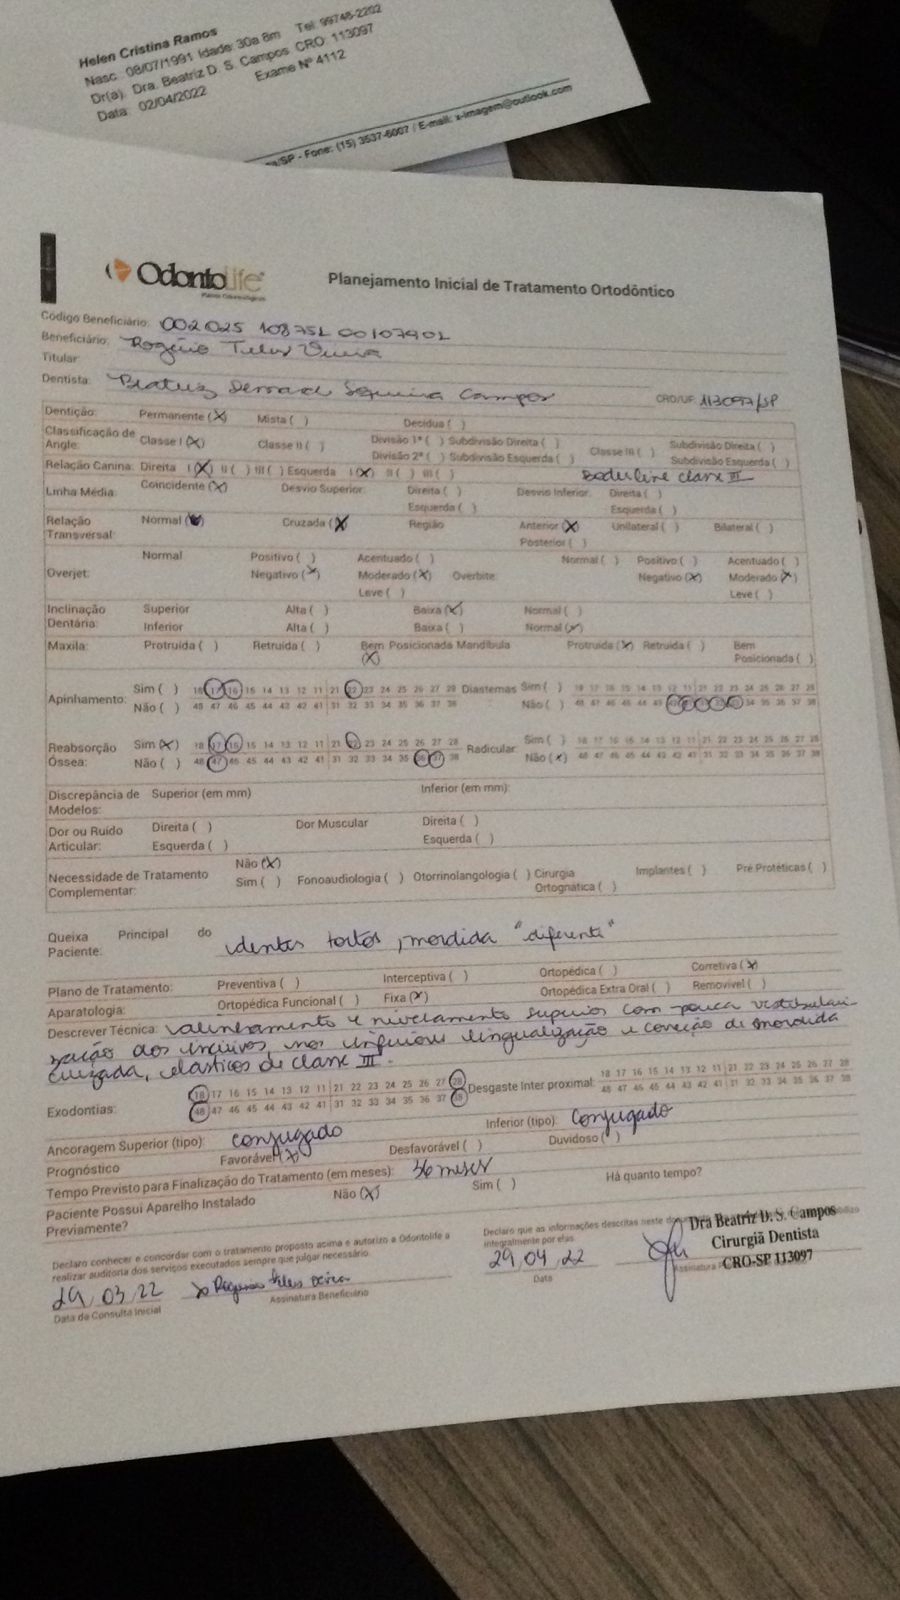 Helen Cristina Ramos
Nasc.: 08/07/1991 Idade: 30a 8m Tel: 99748-2202
Dr(a). Dra. Beatriz D. S. Campos CRO: 113097
Data: 02/04/2022 Exame Nº 4112
/SP - Fone: (15) 3537-6007 / E-mail: x-imagem@outlook.com
OdontoLife
Planos Odontológicos
Planejamento Inicial de Tratamento Ortodôntico
Código Beneficiário: 002025 108752 00107902
Beneficiário: Rogério Teles Vieira
Titular:
Dentista: Beatriz Campos CRO/UF: 113097/SP
Dentição: Permanente (X) Mista ( ) Decídua ( )
Classificação de Angle: Classe I (X) Classe II ( ) Divisão 1ª ( ) Subdivisão Direita ( ) Classe III ( ) Subdivisão Direita ( )
Divisão 2ª ( ) Subdivisão Esquerda ( ) Subdivisão Esquerda ( )
Relação Canina: Direita I (X) II ( ) III ( ) Esquerda I (X) II ( ) III ( ) Boderline classe III
Linha Média: Coincidente (X) Desvio Superior: Direita ( ) Desvio Inferior: Direita ( )
Esquerda ( ) Esquerda ( )
Relação Transversal: Normal ( ) Cruzada (X) Região Anterior (X) Unilateral ( ) Bilateral ( )
Posterior ( )
Normal Positivo ( ) Acentuado ( ) Normal ( ) Positivo ( ) Acentuado ( )
Overjet: Negativo (X) Moderado (X) Overbite: Negativo (X) Moderado (X)
Leve ( ) Leve ( )
Inclinação Dentária: Superior Alta ( ) Baixa (X) Normal ( )
Inferior Alta ( ) Baixa ( ) Normal (X)
Maxila: Protruída ( ) Retruída ( ) Bem Posicionada (X) Mandíbula Protruída (X) Retruída ( ) Bem Posicionada ( )
Apinhamento: Sim ( ) 18 17 16 15 14 13 12 11 21 22 23 24 25 26 27 28 Diastemas Sim ( ) 18 17 16 15 14 13 12 11 21 22 23 24 25 26 27 28
Não ( ) 48 47 46 45 44 43 42 41 31 32 33 34 35 36 37 38 Não ( ) 48 47 46 45 44 43 42 41 31 32 33 34 35 36 37 38
Reabsorção Óssea: Sim (X) 18 17 16 15 14 13 12 11 21 22 23 24 25 26 27 28 Radicular: Sim ( ) 18 17 16 15 14 13 12 11 21 22 23 24 25 26 27 28
Não ( ) 48 47 46 45 44 43 42 41 31 32 33 34 35 36 37 38 Não (X) 48 47 46 45 44 43 42 41 31 32 33 34 35 36 37 38
Discrepância de Modelos: Superior (em mm) Inferior (em mm):
Dor ou Ruído Articular: Direita ( ) Dor Muscular Direita ( )
Esquerda ( ) Esquerda ( )
Necessidade de Tratamento Complementar: Não (X)
Sim ( ) Fonoaudiologia ( ) Otorrinolangologia ( ) Cirurgia Ortognática ( ) Implantes ( ) Pré Protéticas ( )
Queixa Principal do Paciente: dentes tortos, mordida "diferente"
Plano de Tratamento: Preventiva ( ) Interceptiva ( ) Ortopédica ( ) Corretiva (X)
Aparatologia: Ortopédica Funcional ( ) Fixa (X) Ortopédica Extra Oral ( ) Removível ( )
Descrever Técnica: alinhamento e nivelamento superior com pouca vestibulari-
zação dos incisivos, nos inferiores lingualização e correção de mordida
cruzada, elásticos de classe III.
Exodontias: 18 17 16 15 14 13 12 11 21 22 23 24 25 26 27 28 Desgaste Inter proximal: 18 17 16 15 14 13 12 11 21 22 23 24 25 26 27 28
48 47 46 45 44 43 42 41 31 32 33 34 35 36 37 38 48 47 46 45 44 43 42 41 31 32 33 34 35 36 37 38
Ancoragem Superior (tipo): conjugado Inferior (tipo): conjugado
Prognóstico Favorável (X) Desfavorável ( ) Duvidoso ( )
Tempo Previsto para Finalização do Tratamento (em meses): 36 meses
Paciente Possui Aparelho Instalado Previamente? Não (X) Sim ( ) Há quanto tempo?
Declaro conhecer e concordar com o tratamento proposto acima e autorizo a Odontolife a
realizar auditoria dos serviços executados sempre que julgar necessário.
29/03/22 Rogerio Teles Vieira
Data da Consulta Inicial Assinatura Beneficiário
Declaro que as informações descritas neste
integralmente por elas
29/04/22
Data
Dra Beatriz D. S. Campos
Cirurgiã Dentista
CRO-SP 113097